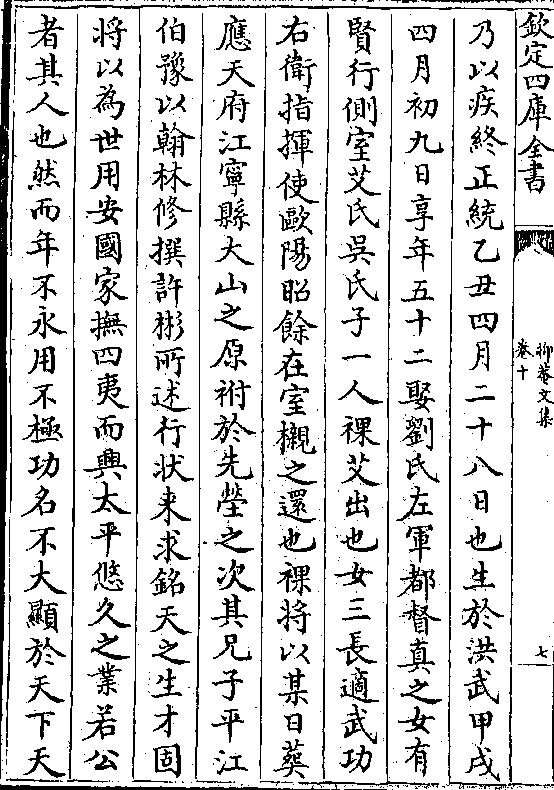 欽定四庫全書
抑菴文集
卷十
七
乃以疾終正統乙丑四月二十八日也生於洪武甲戌
四月初九日享年五十二娶劉氏左軍都督真之女有
賢行側室艾氏吳氏子一人祼艾出也女三長適武功
右衛指揮使歐陽昭餘在室櫬之還也祼將以某日葬
應天府江寧縣大山之原祔於先塋之次其兄子平江
伯豫以翰林修撰許彬所述行狀來求銘天之生才固
將以為世用安國家撫四夷而興太平悠久之業若公
者其人也然而年不永用不極功名不大顯於天下天